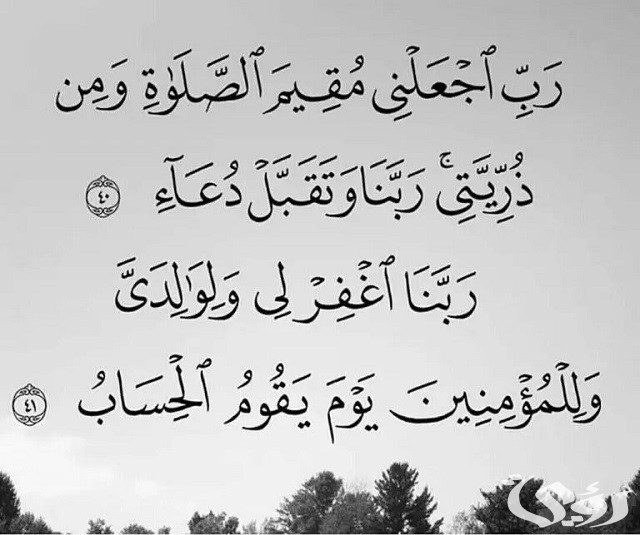 رَبِّ ٱجْعَلْنِى مُقِيمَ ٱلصَّلَوٰةِ وَمِن
ذُرِّيَّتِى ۚ رَبَّنَا وَتَقَبَّلْ دُعَآءِ ٤٠
رَبَّنَا ٱغْفِرْ لِى وَلِوَٰلِدَىَّ
وَلِلْمُؤْمِنِينَ يَوْمَ يَقُومُ ٱلْحِسَابُ ٤١
رؤية